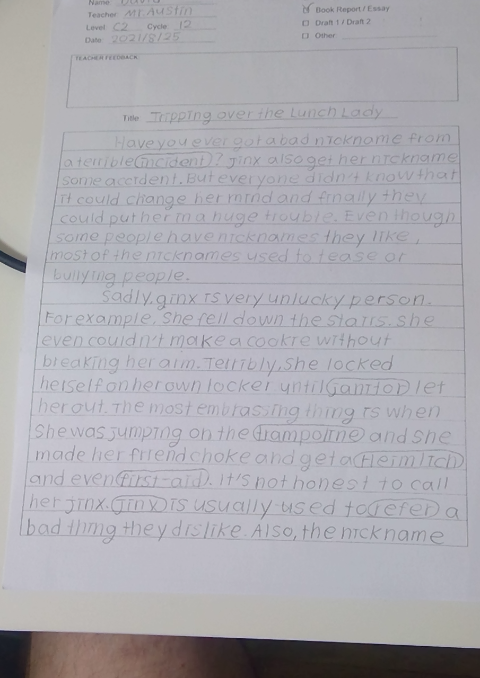 Name: David
Teacher: Mr Austin
Level: C2 Cycle 12
Date: 2021/8/25
Book Report / Essay
Draft 1 / Draft 2
Other:
TEACHER FEEDBACK:
Title: Tripping over the Lunch Lady
Have you ever got a bad nickname from
a terrible incident? jinx also get her nickname
some accident. But everyone didn't know that
it could change her mind and finally they
could put her in a huge trouble. Even though
some people have nicknames they like,
most of the nicknames used to tease or
bullying people.
Sadly, ginx is very unlucky person.
For example, She fell down the stairs. she
even couldn't make a cookie without
breaking her arm. Terribly, she locked
herself on her own locker until janitor let
her out. The most embrassing thing is when
She was jumping on the trampoline and she
made her friend choke and get a Heimlich
and even first-aid. It's not honest to call
her jinx. Jinx is usually used to refer a
bad thing they dislike. Also, the nickname